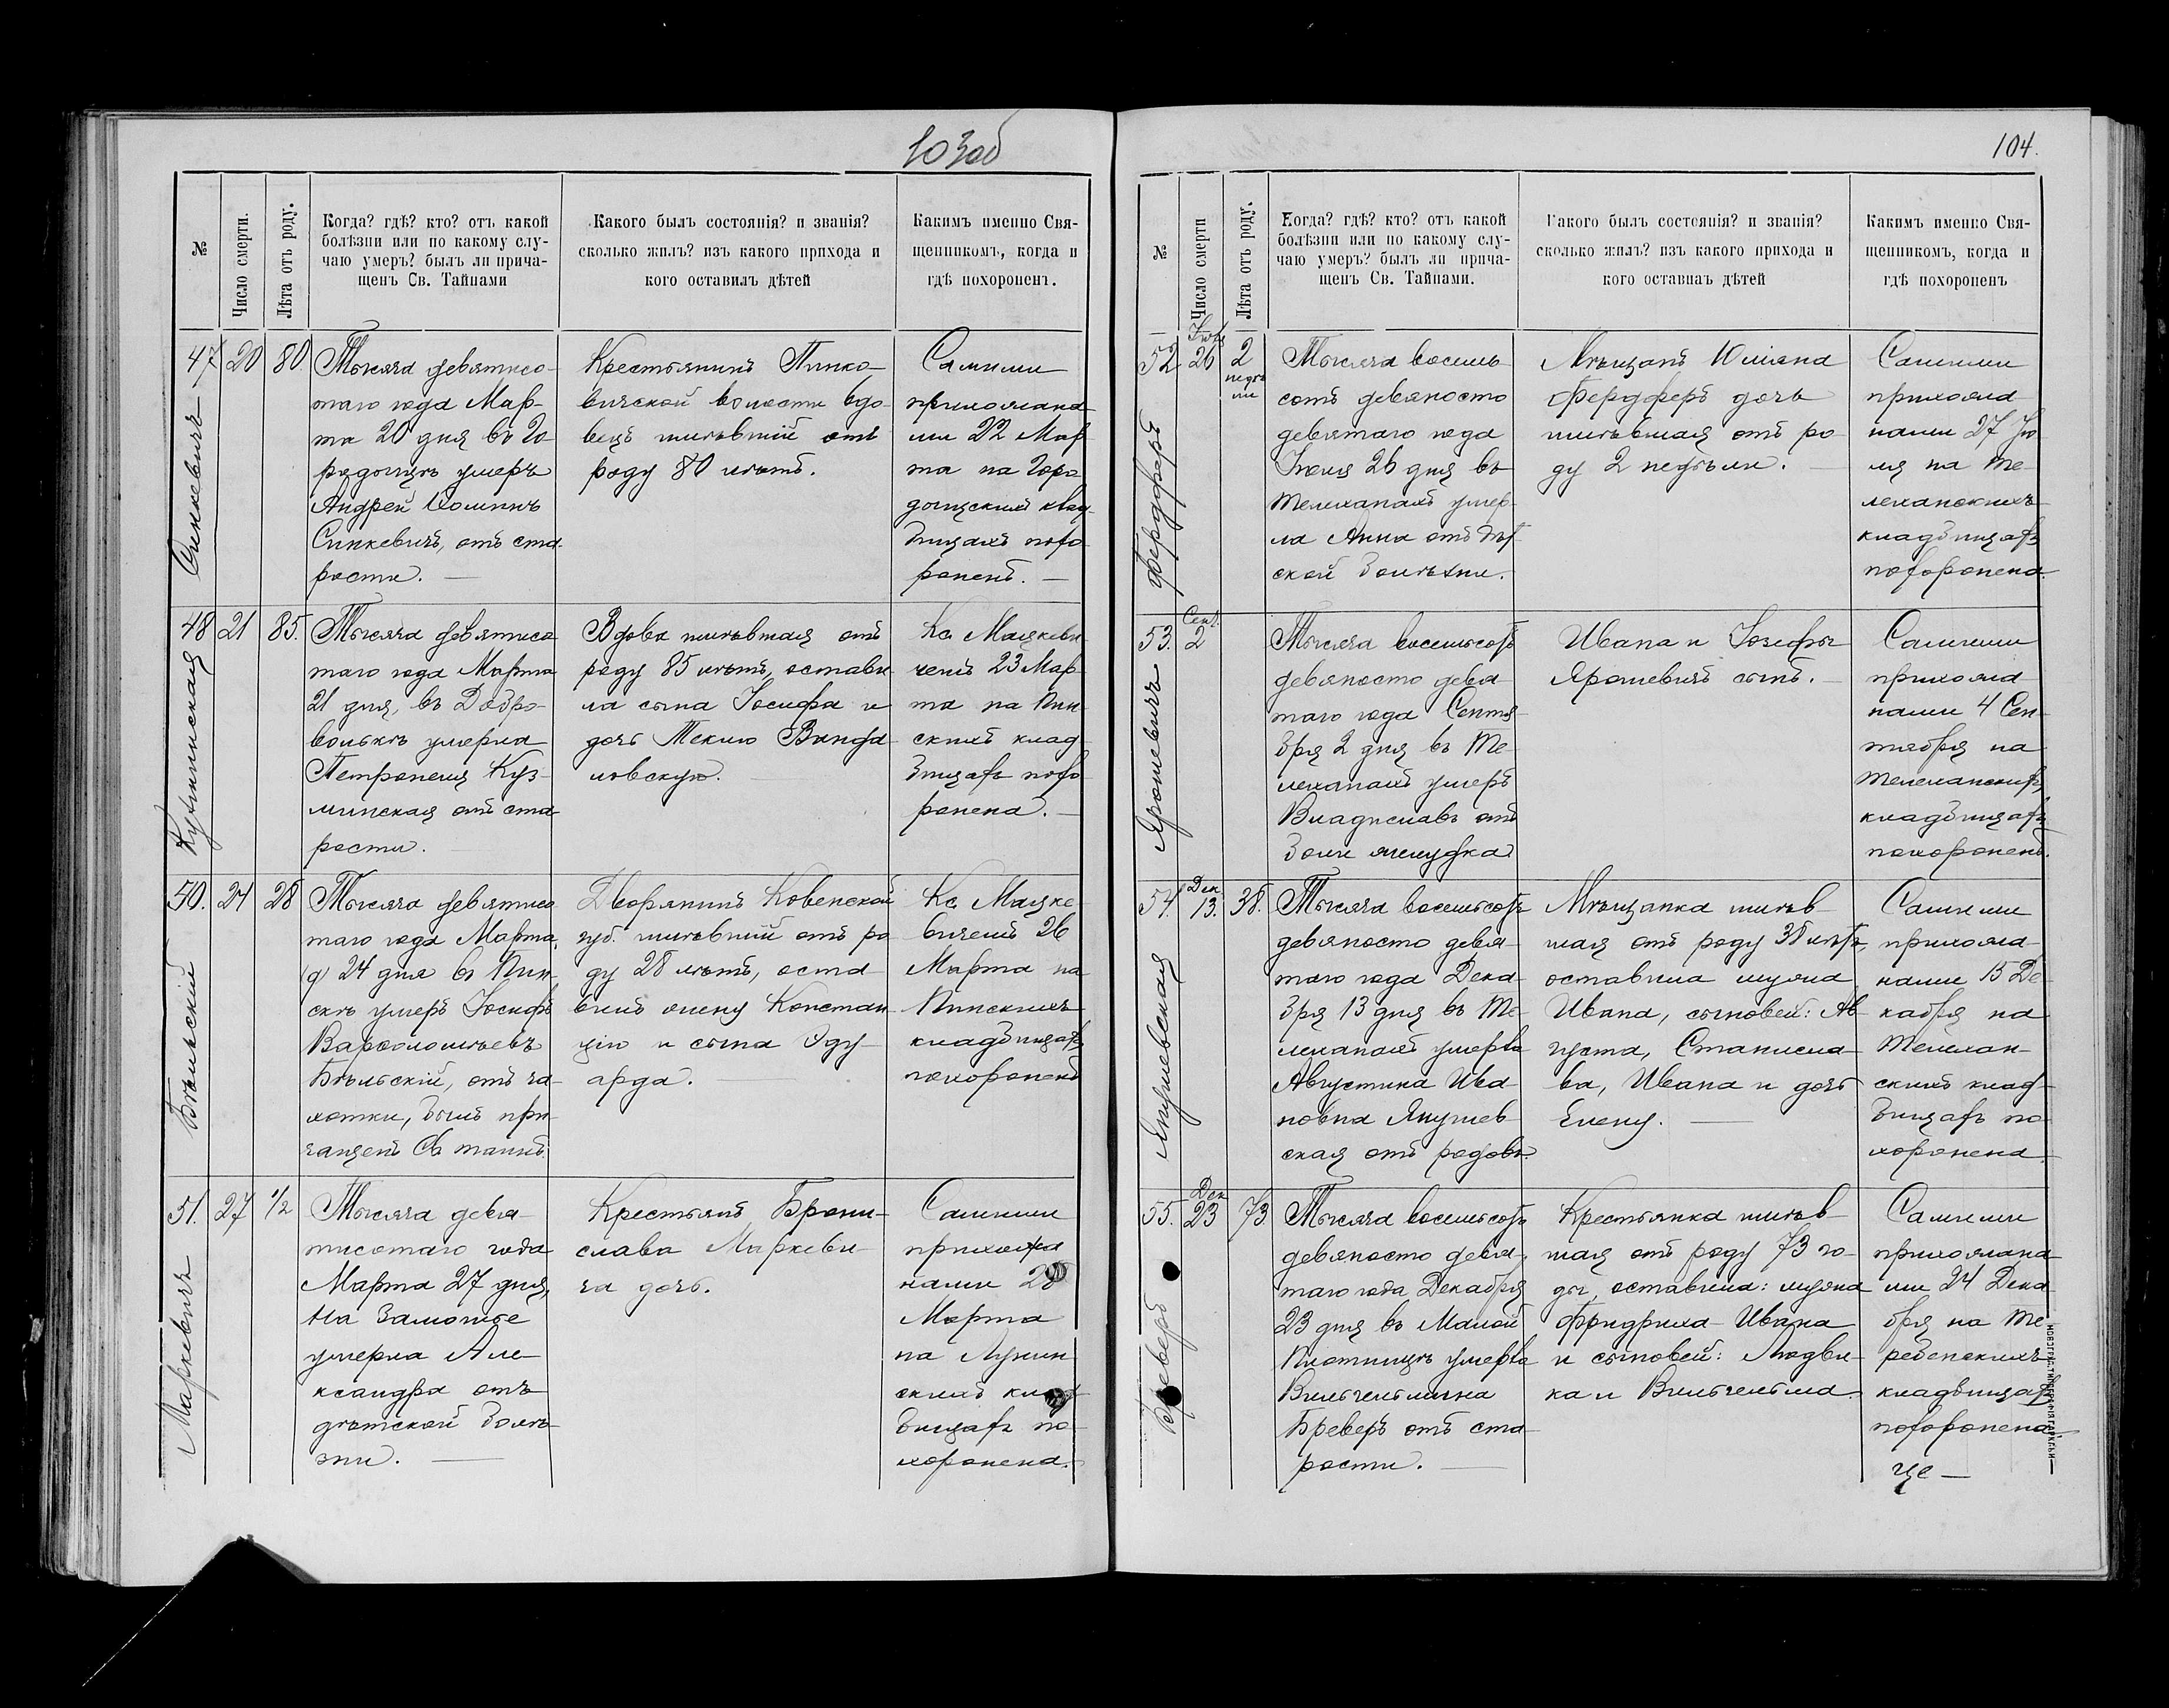 103об
№
Число смерти.
Лѣта отъ роду.
Когда? гдѣ? кто? отъ какой
болѣзни или по какому слу-
чаю умеръ? былъ ли прича-
щенъ Св. Тайнами
Какого былъ состоянія? и званія?
сколько жилъ? изъ какого прихода и
кого оставилъ дѣтей
Какимъ именно Свя-
щенникомъ, когда и
гдѣ похороненъ.
47
Синкевичъ
20
80
Тысяча девятисо-
таго года Мар-
та 20 дня въ Го-
родищѣ умеръ
Андрей Ѳоминъ
Синкевичъ, отъ ста-
рости. —
Крестьянинъ Пинко-
вичской волости вдо-
вецъ жившій отъ
роду 80 лѣтъ.
Самими
прихожана-
ми 22 Мар-
та на Горо-
дищскихъ клад-
бищахъ похо-
роненъ. —
48
Кузминская
21
85.
Тысяча девятисо-
таго года Марта
21 дня, въ Добро-
вольѣ умерла
Петронеля Куз-
минская отъ ста-
рости.
Вдова жившая отъ
роду 85 лѣтъ, остави-
ла сына Іосифа и
дочь Теклю Ванда-
ловскую.
Кс. Мацкеви-
чемъ 23 Мар-
та на Пин-
скихъ клад-
бищахъ похо-
ронена. —
50.
Бѣльскій
24
28
Тысяча девятисо-
таго года Марта,
24 дня въ Пин-
скѣ умеръ Іосифъ
Варѳоломѣевъ
Бѣльскій, отъ ча-
хотки, былъ при-
чащенъ Св таинъ.
Дворянинъ Ковенской
губ. жившій отъ ро-
ду 28 лѣтъ, оста-
вилъ жену Констан-
цію и сына Эду-
арда.
Кс. Мацке-
вичемъ 26
Марта на
Пинскихъ
кладбищахъ
похороненъ
51.
Маркевичъ
27
1/2
Тысяча девя-
тисотаго года
Марта 27 дня,
на Замостье
умерла Але-
ксандра отъ
дѣтской болѣ-
зни. —
Крестьянъ Брони-
слава Маркеви-
ча дочь.
Самими
прихожа-
нами 28
Марта
на Лунин-
скихъ клад-
бищахъ по-
хоронена.
104.
№
Число смерти
Лѣта отъ роду.
Когда? гдѣ? кто? отъ какой
болѣзни или по какому слу-
чаю умеръ? былъ ли прича-
щенъ Св. Тайнами.
Какого былъ состоянія? и званія?
сколько жилъ? изъ какого прихода и
кого оставилъ дѣтей
Какимъ именно Свя-
щенникомъ, когда и
гдѣ похороненъ
52
Фердферъ
Іюля
26
2
недѣ-
ли
Тысяча восемь-
сотъ девяносто
девятаго года
Іюля 26 дня въ
Телеханахъ умер-
ла Анна отъ дѣт-
ской болѣзни.
Мѣщанъ Юліана
Фердферъ дочь
жившая отъ ро-
ду 2 недѣли. —
Самими
прихожа-
нами 27 Ію-
ля на Те-
леханскихъ
кладбищахъ
похоронена.
53.
Ярошевичъ
Сент.
2
Тысяча восемьсотъ
девяносто девя-
таго года Сентя-
бря 2 дня въ Те-
леханахъ умеръ
Владиславъ отъ
боли желудка
Ивана и Іозефы
Ярошевичъ сынъ. —
Самими
прихожа-
нами 4 Сен-
тября на
Телеханскихъ
кладбищахъ
похороненъ.
54.
Янушевская
Дек.
13.
38.
Тысяча восемьсотъ
девяносто девя-
таго года Дека-
бря 13 дня въ Те-
леханахъ умерла
Августина Ива-
новна Янушев-
ская отъ родовъ.
Мѣщанка жив-
шая отъ роду 38 лѣтъ,
оставила мужа
Ивана, сыновей: Ав-
густа, Станисла-
ва, Ивана и дочь
Елену. —
Самими
прихожа-
нами 15 Де-
кабря на
Телехан-
скихъ клад-
бищахъ по-
хоронена.
55.
Бреверъ
Дек
23
73
Тысяча восемьсотъ
девяносто девя-
таго года Декабря
23 дня въ Малой
Плотницѣ умерла
Вильгельмина
Бреверъ отъ ста-
рости. —
Крестьянка жив-
шая отъ роду 73 го-
ды, оставила: мужа
Фридриха-Ивана
и сыновей: Людви-
ка и Вильгельма.
Самими
прихожана-
ми 24 Дека-
бря на Те-
ребенскихъ
кладбищахъ
похоронена